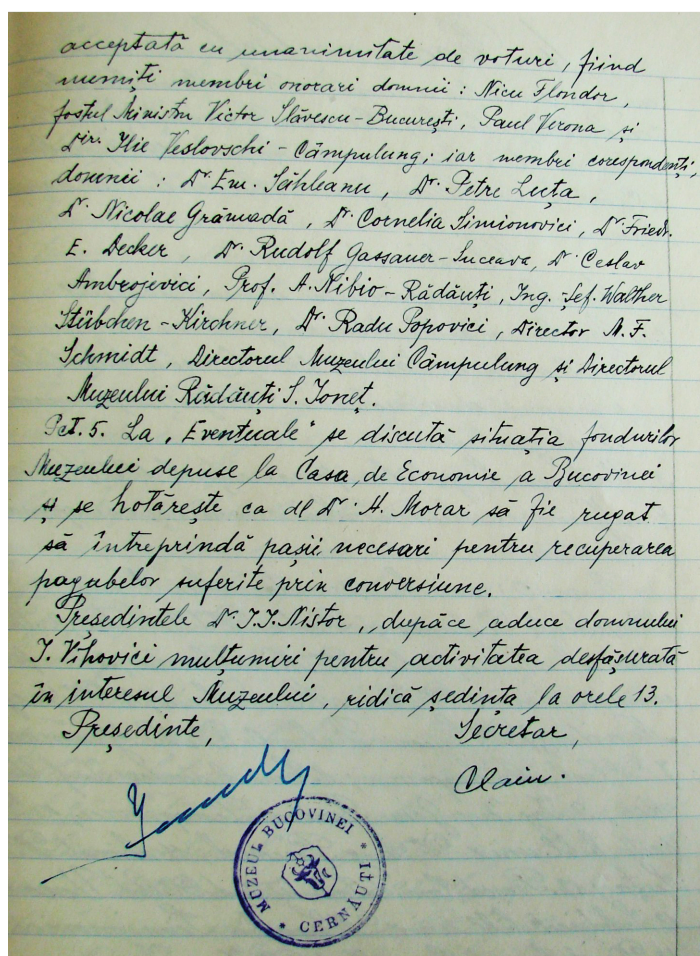 acceptată cu unanimitate de voturi, fiind
numiți membri onorari domnii: Nicu Flondor,
fostul Ministru Victor Slăvescu-București, Paul Verona și
Dir. Ilie Veslovschi-Câmpulung; iar membri corespondenți,
domnii: Dr. Em. Săhleanu, Dr. Petre Luța,
Dr. Nicolae Grămadă, Dr. Cornelia Simionovici, Dr. Friedr.
E. Decker, Dr. Rudolf Gassauer-Suceava, Dr. Ceslav
Ambrojevici, Prof. A. Nibio-Rădăuți, Ing.-Șef. Walther
Stübchen-Kirchner, Dr. Radu Popovici, Director N. F.
Schmidt, Directorul Muzeului Câmpulung și Directorul
Muzeului Rădăuți S. Ioneț.
Pct. 5. La „Eventuale" se discută situația fondurilor
Muzeului depuse la Casa de Economie a Bucovinei
și se hotărește ca dl Dr. H. Morar să fie rugat
să întreprindă pașii necesari pentru recuperarea
pagubelor suferite prin conversiune.
Președintele Dr. I. I. Nistor, dupăce aduce domnului
I. Vihovici mulțumiri pentru activitatea desfășurată
în interesul Muzeului, ridică ședința la orele 13.
Președinte, Secretar,
MUZEUL BUCOVINEI * CERNĂUȚI *